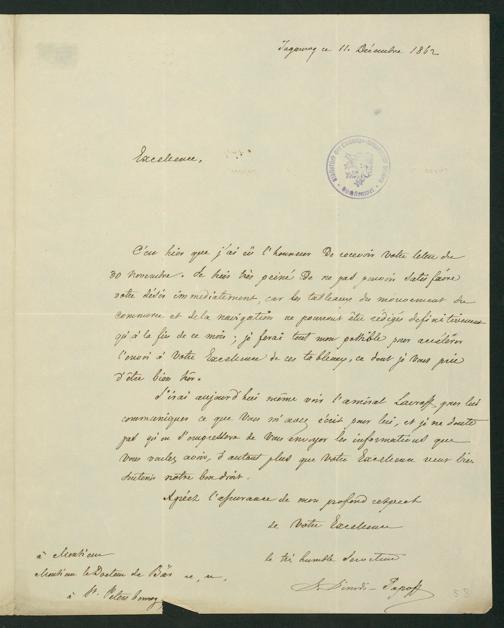 Taganrog ce 11. Décembre 1862
Excellence,
C'est hier que j'ai eû l'honneur De recevoir Votre lettre du
30 Novembre. Je suis très peiné De ne pas pouvoir satisfaire
votre désir immédiatement, car les tableaux du mouvement du
commerce et de la navigation ne pourront être rédigés définitivement
qu'à la fin de ce mois; je ferai tout mon possible pour accélérer
l'envoi à Votre Excellence de ces tableaux, ce dont je Vous prie
d'être bien sûr.
J'irai aujourd'hui même voir l'amiral Lavroff pour lui
communiquer ce que Vous m'avez écrit pour lui, et je ne doute
pas qu'il s'empressera de Vous envoyer les informations que
Vous voulez avoir, d'autant plus que Votre Excellence veut bien
soutenir nôtre bon droit.
Agréez l'assurance de mon profond respect
de Votre Excellence
le très humble Serviteur
à Monsieur
Monsieur le Docteur de Bär
à St. Petersbourg
Popoff